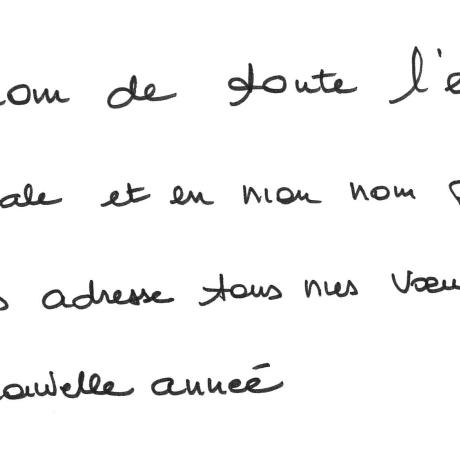 om de toute l'é
ale et en mon nom p
s adresse tous mes vœu
ouvelle année